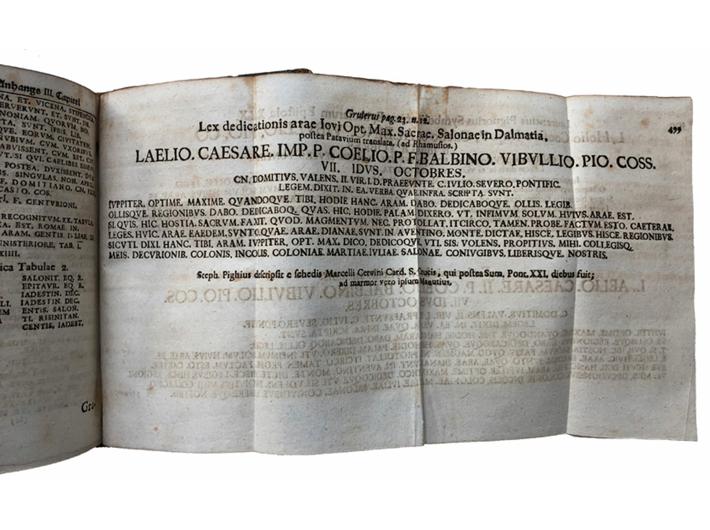 Anhangs III. Capitel
NA. ET. VICENA. STIPENDIA
POSTEA. DVXISSENT. DVM
F. DOMITIANO. CN. FLI
F. CENTVRIONI.
RECOGNITVM. EX. TABVLA
EST. ROMAE. IN
MINISTERIORE, TAB. I.
ica Tabulae 2.
SALONIT. EQ. R.
EPITAVR. EQ. R.
IADESTIN. DEC.
IADESTIN. DEC.
ENTIS. SALON.
TI. RISINITAN.
CENTIS, IADEST.
Gru-
499
Gruterus pag. 23. n. 12.
Lex dedicationis arae Iovi Opt. Max. Sacrae. Salonae in Dalmatia,
postea Patavium translata. (ad Rhamusios.)
LAELIO. CAESARE. IMP. P. COELIO. P. F. BALBINO. VIBVLLIO. PIO. COSS.
VII. IDVS. OCTOBRES.
CN. DOMITIVS. VALENS. II. VIR. I. D. PRAEEVNTE. C. IVLIO. SEVERO. PONTIFIC.
LEGEM. DIXIT. IN EA. VERBA QVAE INFRA. SCRIPTA SVNT.
IVPPITER. OPTIME. MAXIME. QVANDOQVE. TIBI. HODIE HANC. ARAM. DABO. DEDICABOQVE. OLLIS. LEGIB.
OLLISQVE. REGIONIBVS. DABO. DEDICABOQ. QVAS. HIC. HODIE. PALAM. DIXERO. VT. INFIMVM SOLVM. HVIVS. ARAE. EST.
SI. QVIS. HIC. HOSTIA. SACRVM. FAXIT. QVOD. MAGMENTVM. NEC. PROTOLLAT. ITCIRCO. TAMEN. PROBE. FACTVM. ESTO. CAETERAE.
LEGES. HVIC. ARAE. EAEDEM. SVNTO. QVAE. ARAE. DIANAE. SVNT. IN. AVENTINO. MONTE. DICTAE. HISCE. LEGIBVS. HISCE. REGIONIBVS.
SICVTI. DIXI. HANC. TIBI. ARAM. IVPPITER. OPT. MAX. DICO. DEDICOQVE. VTI. SIS. VOLENS. PROPITIVS. MIHI. COLLEGISQ.
MEIS. DECVRIONIB. COLONIS. INCOLIS. COLONIAE. MARTIAE. IVLIAE. SALONAE. CONIVGIBVS. LIBERISQVE. NOSTRIS.
Steph. Pighius descripsit e schedis Marcelli Cervini Card. S. Crucis, qui postea Sum. Pont. XXI. diebus fuit;
ad marmor vero ipsum Manutius.